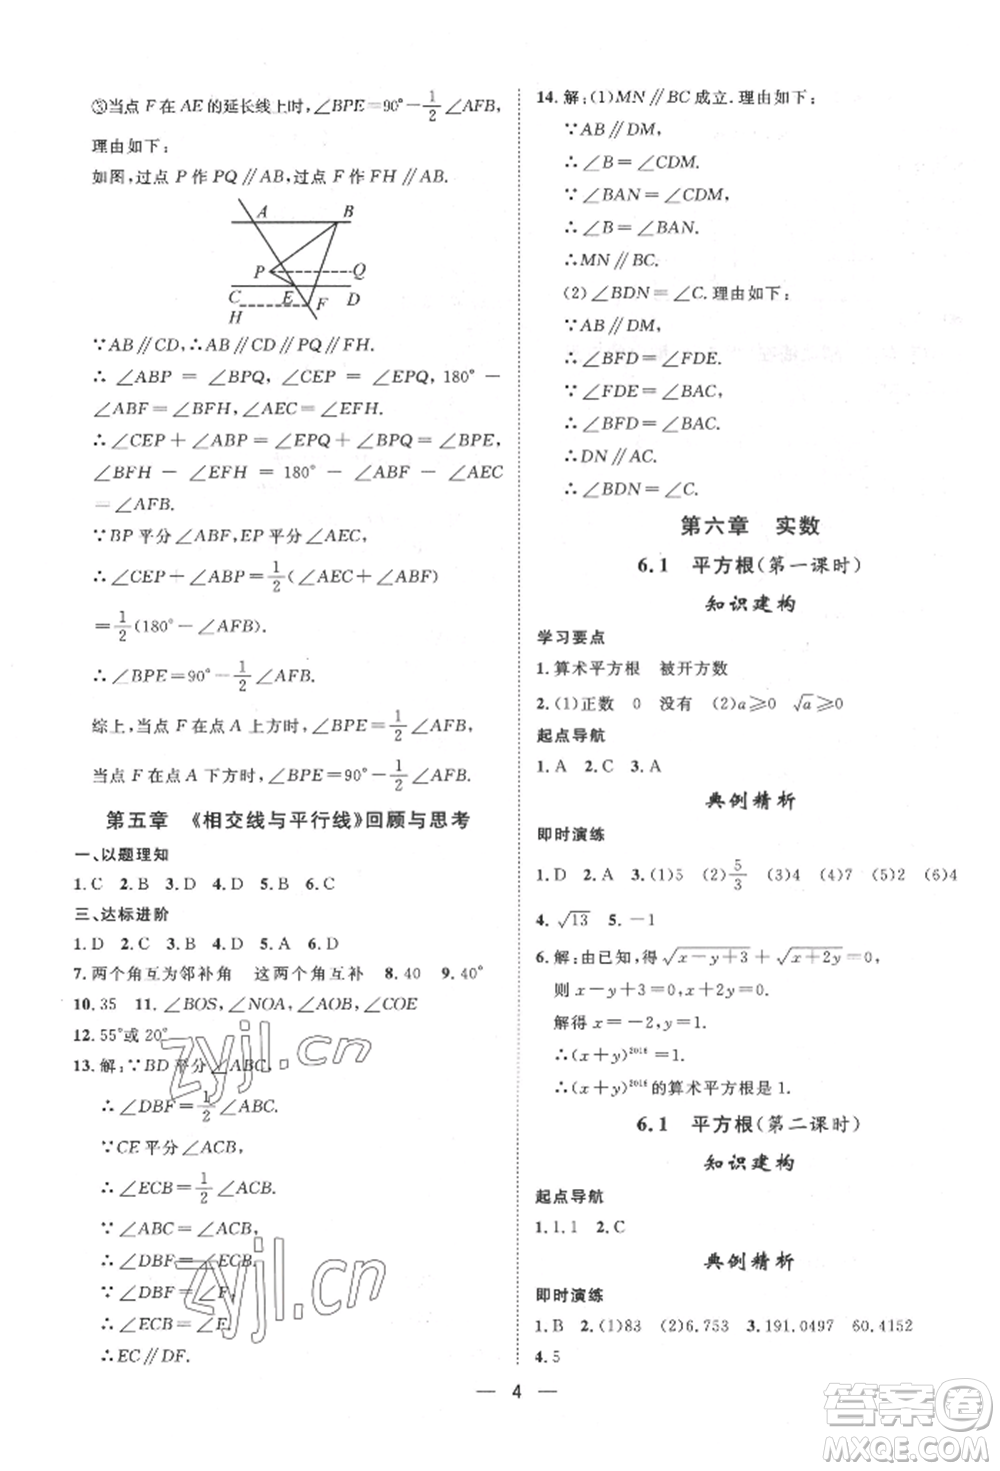 ③当点 F 在 AE 的延长线上时,∠BPE=90°-1/2∠AFB,
理由如下:
如图,过点 P 作 PQ∥AB,过点 F 作 FH∥AB.
A B
P Q
C E D
H F
∵AB∥CD,∴AB∥CD∥PQ∥FH.
∴∠ABP=∠BPQ,∠CEP=∠EPQ,180°-
∠ABF=∠BFH,∠AEC=∠EFH.
∴∠CEP+∠ABP=∠EPQ+∠BPQ=∠BPE,
∠BFH-∠EFH=180°-∠ABF-∠AEC
=∠AFB.
∵BP平分∠ABF,EP平分∠AEC,
∴∠CEP+∠ABP=1/2(∠ABF+∠AEC)
=1/2(180°-∠AFB).
∴∠BPE=90°-1/2∠AFB.
综上,当点 F 在点 A 上方时,∠BPE=1/2∠AFB,
当点 F 在点 A 下方时,∠BPE=90°-1/2∠AFB.
第五章 《相交线与平行线》回顾与思考
一、以题理知
1.C 2.B 3.D 4.D 5.B 6.B 7.C
三、达标进阶
1.D 2.B 3.B 4.D 5.B 6.D
7.两个角互为邻补角 这两个角互补 8.40 9.40°
10.35 11.∠BOS,∠NOA,∠AOB,∠COE
12.55°或20°
13.解:∵BD平分∠ABC,
∴∠DBF=1/2∠ABC.
∵CE平分∠ACB,
∴∠ECB=1/2∠ACB.
∵∠ABC=∠ACB,
∴∠DBF=∠ECB.
∵∠DBF=∠F,
∴∠ECB=∠F.
∴EC∥DF.
14.解:(1)MN∥BC成立.理由如下:
∵AB∥DM,
∴∠B=∠CDM.
∵∠BAN=∠CDM,
∴∠B=∠BAN.
∴MN∥BC.
(2)∠BDN=∠C.理由如下:
∵AB∥DM,
∴∠BFD=∠FDE.
∵∠FDE=∠BAC,
∴∠BFD=∠BAC.
∴DN∥AC.
∴∠BDN=∠C.
第六章 实数
6.1 平方根(第一课时)
知识建构
学习要点
1.算术平方根 被开方数
2.(1)正数 0 没有 (2)a⩾0 √a⩾0
起点导航
1.A 2.C 3.A
典例精析
即时演练
1.D 2.A 3.(1)5 (2)5/3 (3)0.2 (4)7 (5)2 (6)4
4.√13 5.-1
6.解:由已知,得√(x-y+3)+√(x+y-1)=0,
则 x-y+3=0,x+y-1=0.
解得 x=-2,y=1.
∴(x+y)²⁰¹⁶=1.
∴(x+y)²⁰¹⁶的算术平方根是1.
6.1 平方根(第二课时)
知识建构
起点导航
1.1.1 2.C
典例精析
即时演练
1.B 2.(1)83 (2)6.753 3.191.0497 60.4152
4.5
4
zyjl.cn
zyjl.cn
答案卷
MXQE.COM